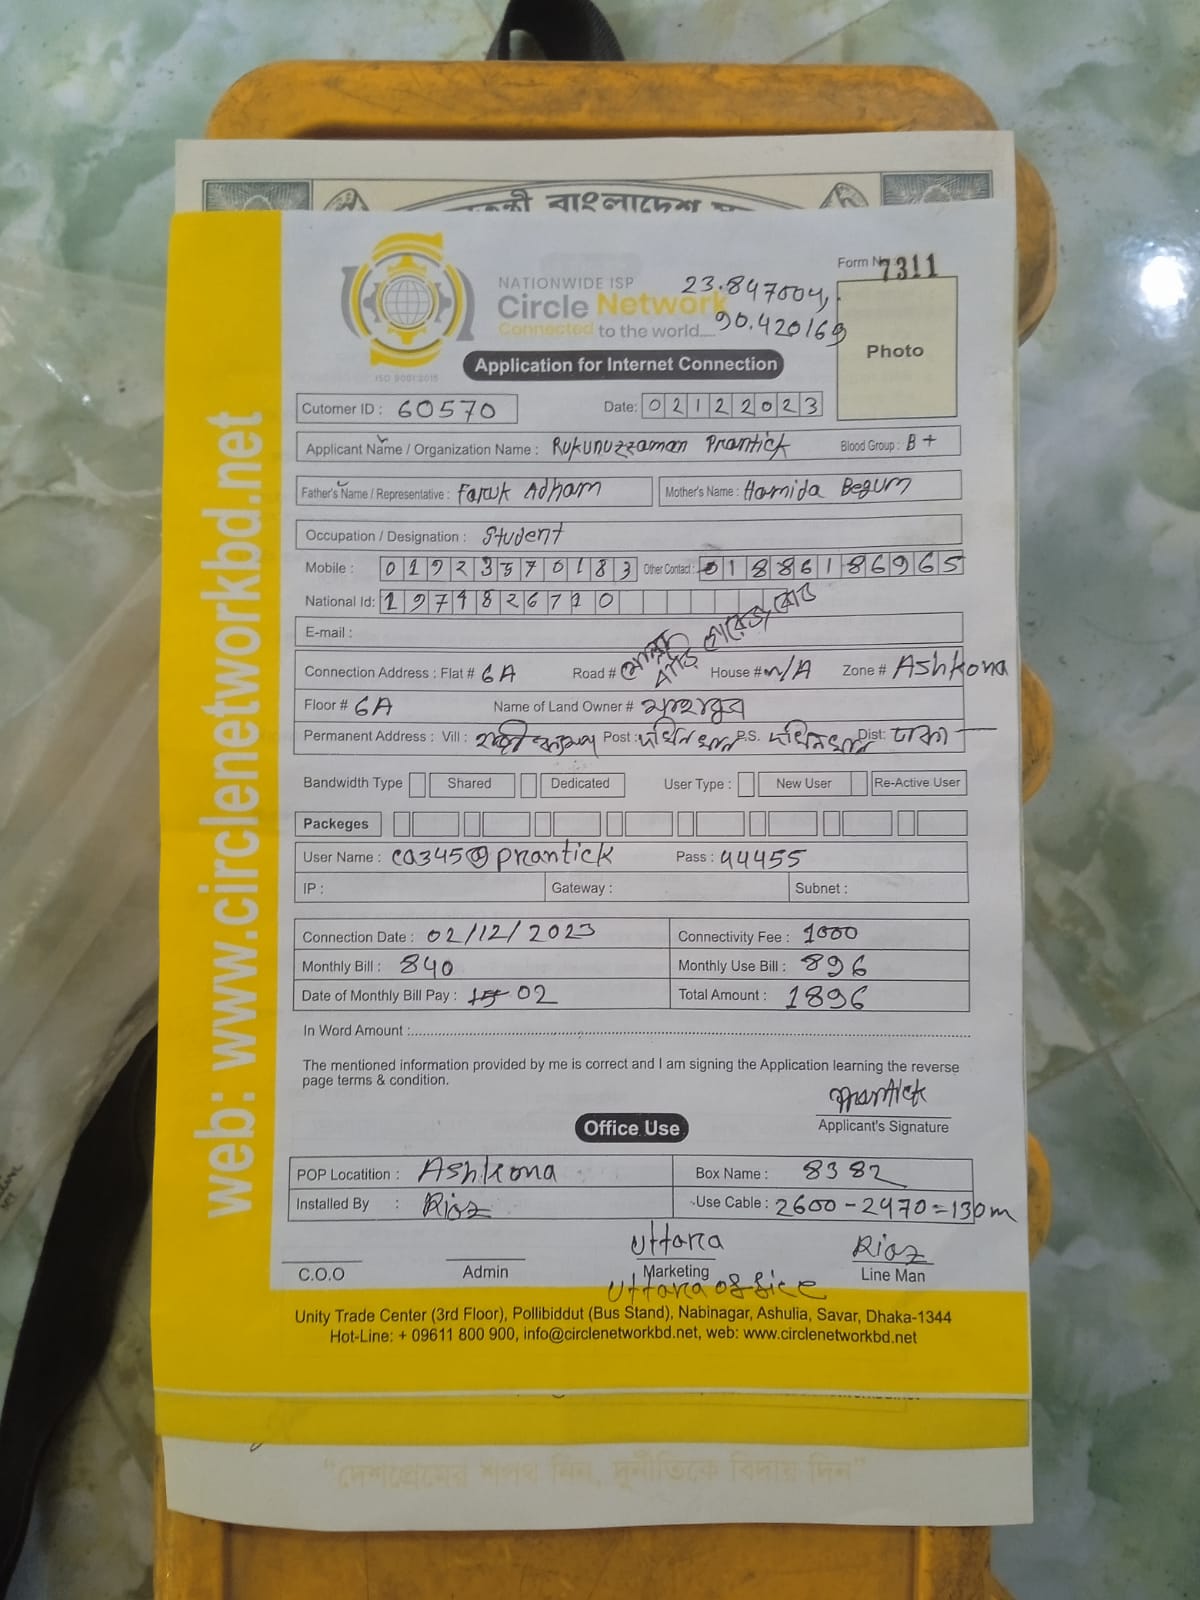 Form No 7311
NATIONWIDE ISP
Circle Network
Connected to the world....
23.847004,
90.420169
ISO 9001:2015
Photo
Application for Internet Connection
Cutomer ID : 60570 Date: 02122023
Applicant Name / Organization Name : Rukunuzzaman Prantick Blood Group : B+
Father's Name / Representative : Faruk Adham Mother's Name : Hamida Begum
Occupation / Designation : Student
Mobile : Other Contact : 01886186965
National Id:
E-mail :
Connection Address : Flat # 6A Road # House # N/A Zone # Ashkona
Floor # 6A Name of Land Owner #
Permanent Address : Vill : Post : P.S. Dist: ঢাকা
Bandwidth Type Shared Dedicated User Type : New User Re-Active User
Packeges
User Name : ca345@prantick Pass : 44455
IP : Gateway : Subnet :
Connection Date : 02/12/2023 Connectivity Fee : 1000
Monthly Bill : 840 Monthly Use Bill : 896
Date of Monthly Bill Pay : 02 Total Amount : 1896
In Word Amount :
The mentioned information provided by me is correct and I am signing the Application learning the reverse
page terms & condition.
Prantick
Applicant's Signature
Office Use
POP Locatition : Ashkona Box Name : 8382
Installed By : Riaz Use Cable : 2600-2470=130m
Uttara Riaz
C.O.O Admin Marketing Line Man
Uttara office
Unity Trade Center (3rd Floor), Pollibiddut (Bus Stand), Nabinagar, Ashulia, Savar, Dhaka-1344
Hot-Line: + 09611 800 900, info@circlenetworkbd.net, web: www.circlenetworkbd.net
web: www.circlenetworkbd.net
"দেশপ্রেমের শপথ নিন, দূর্নীতিকে বিদায় দিন"